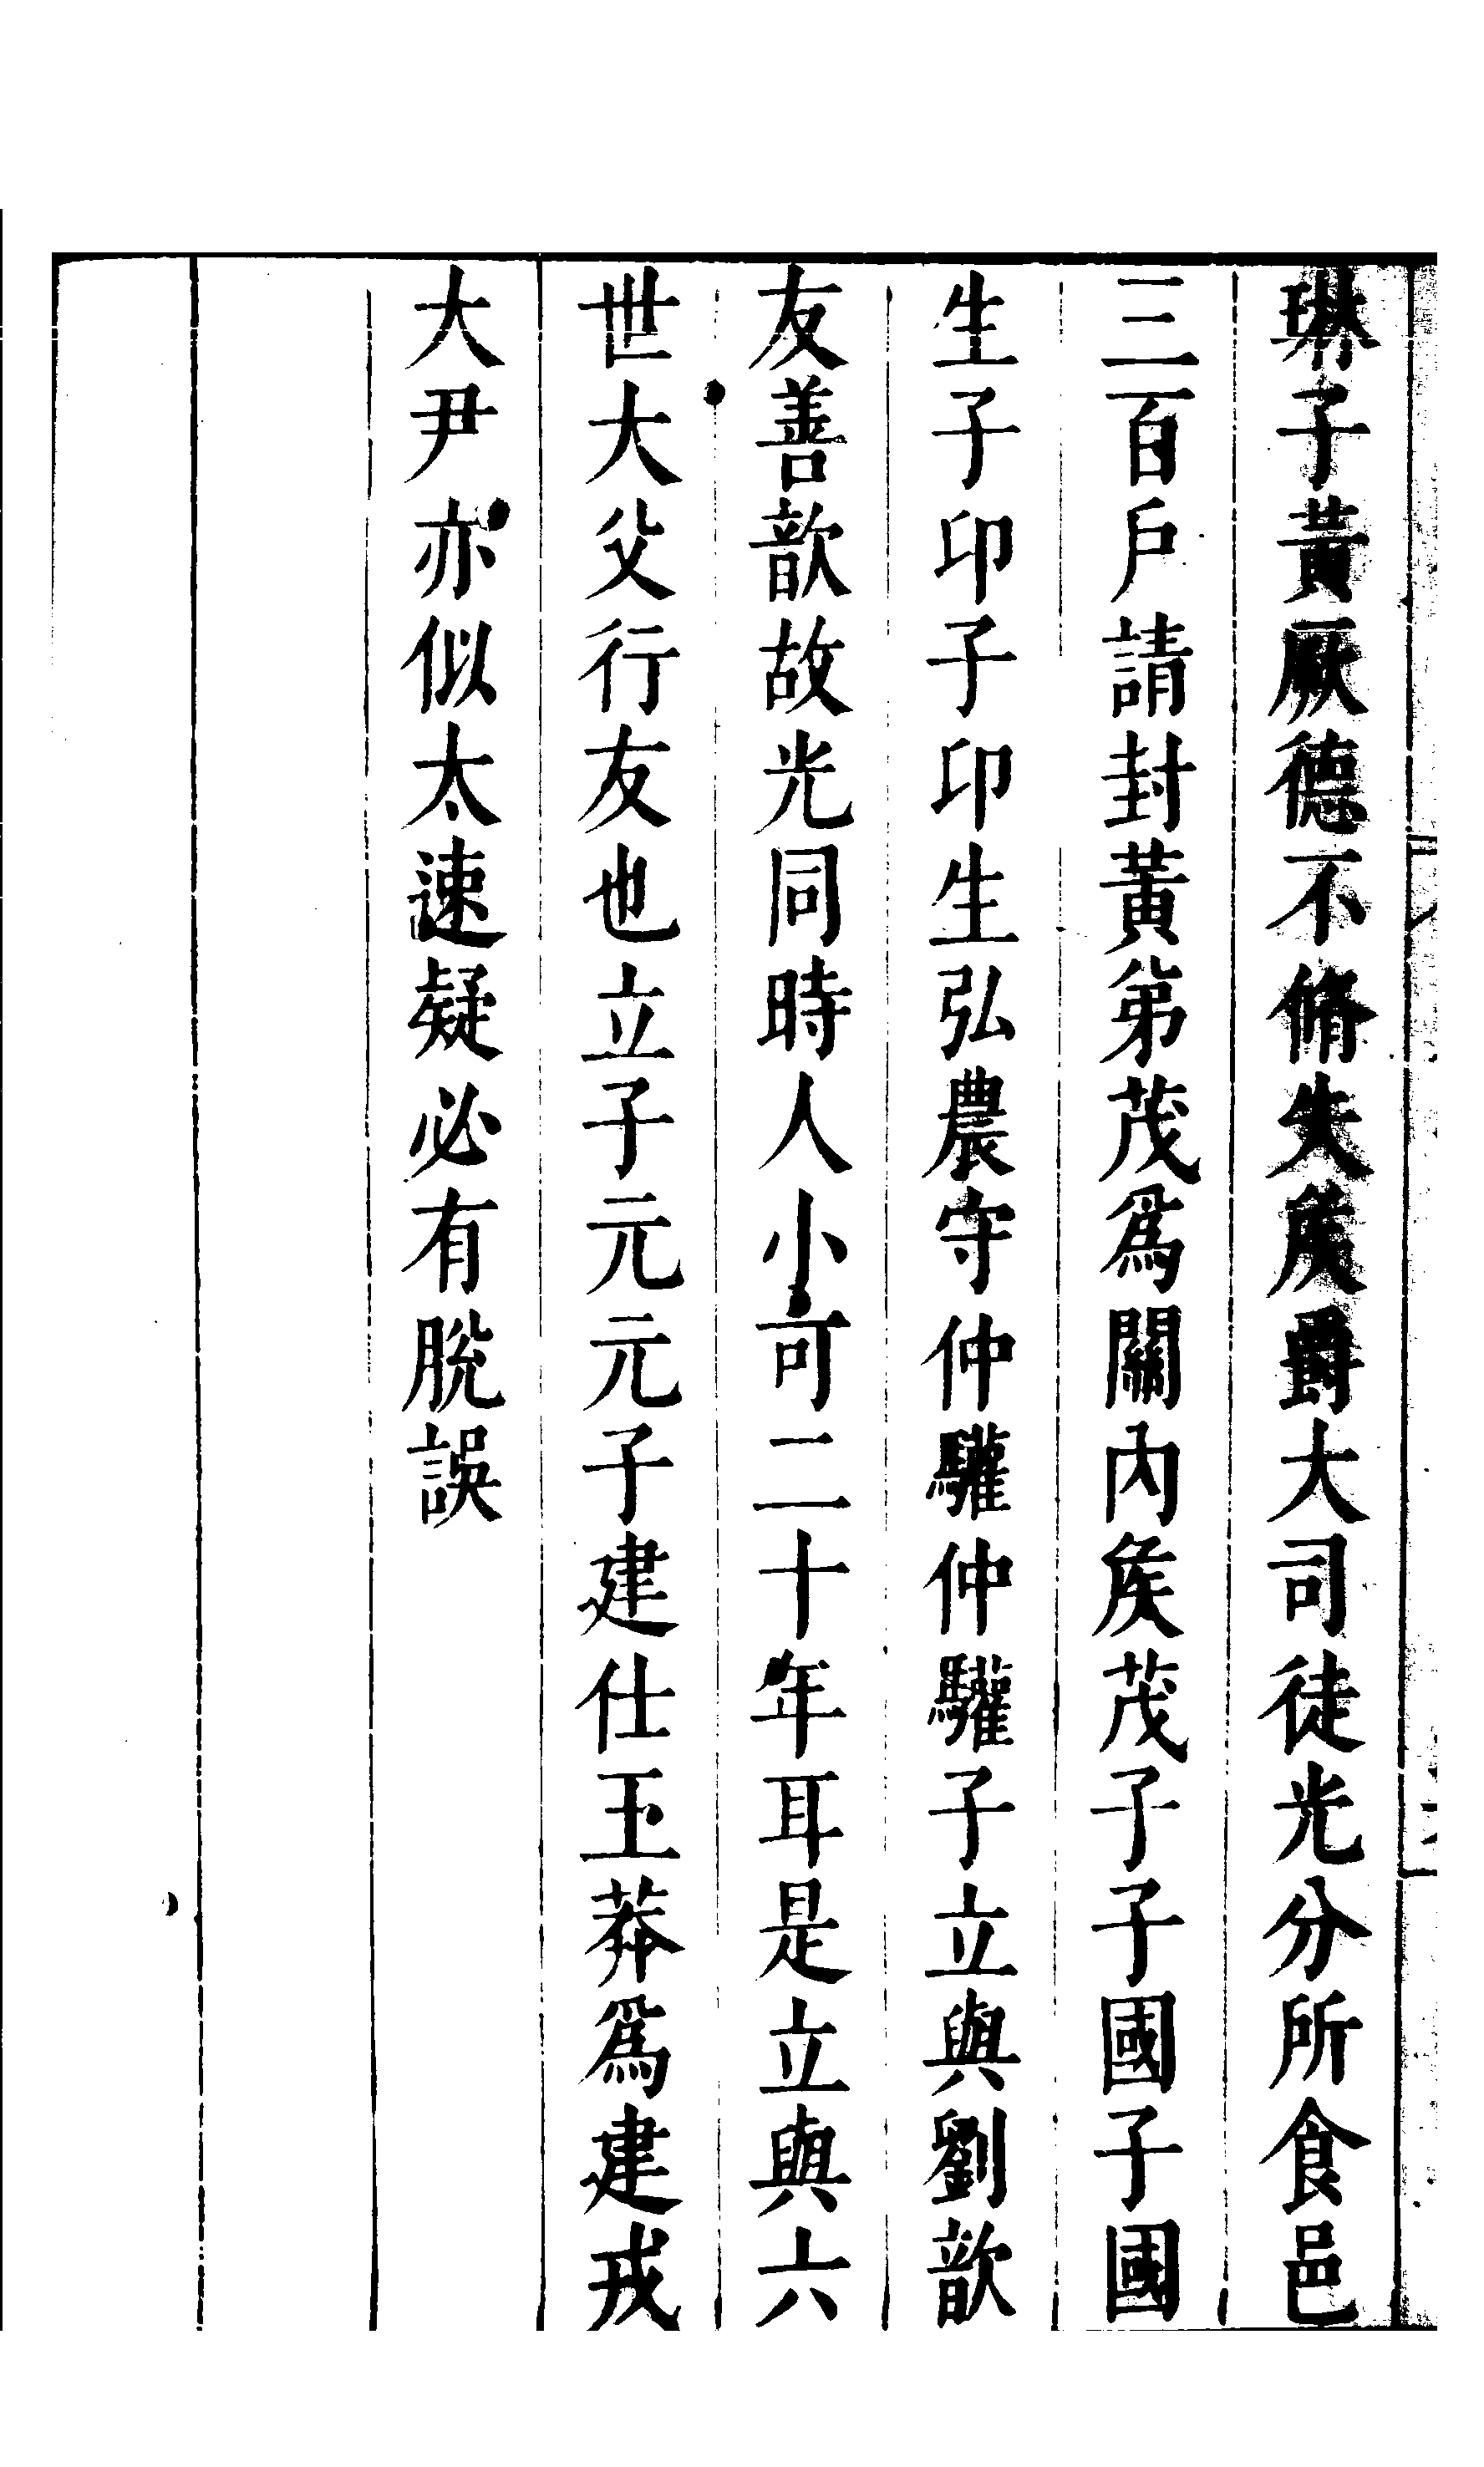 琳子黃厥德不脩失矦爵大司徒光分所食邑
三百戶請封黃弟茂爲關內矦茂子子國子國
生子卬子卬生弘農守仲驩仲驩子立與劉歆
友善歆故光同時人小可二十年耳是立與六
世大父行友也立子元元子建仕王莽爲建戎
大尹亦似太速疑必有脫誤